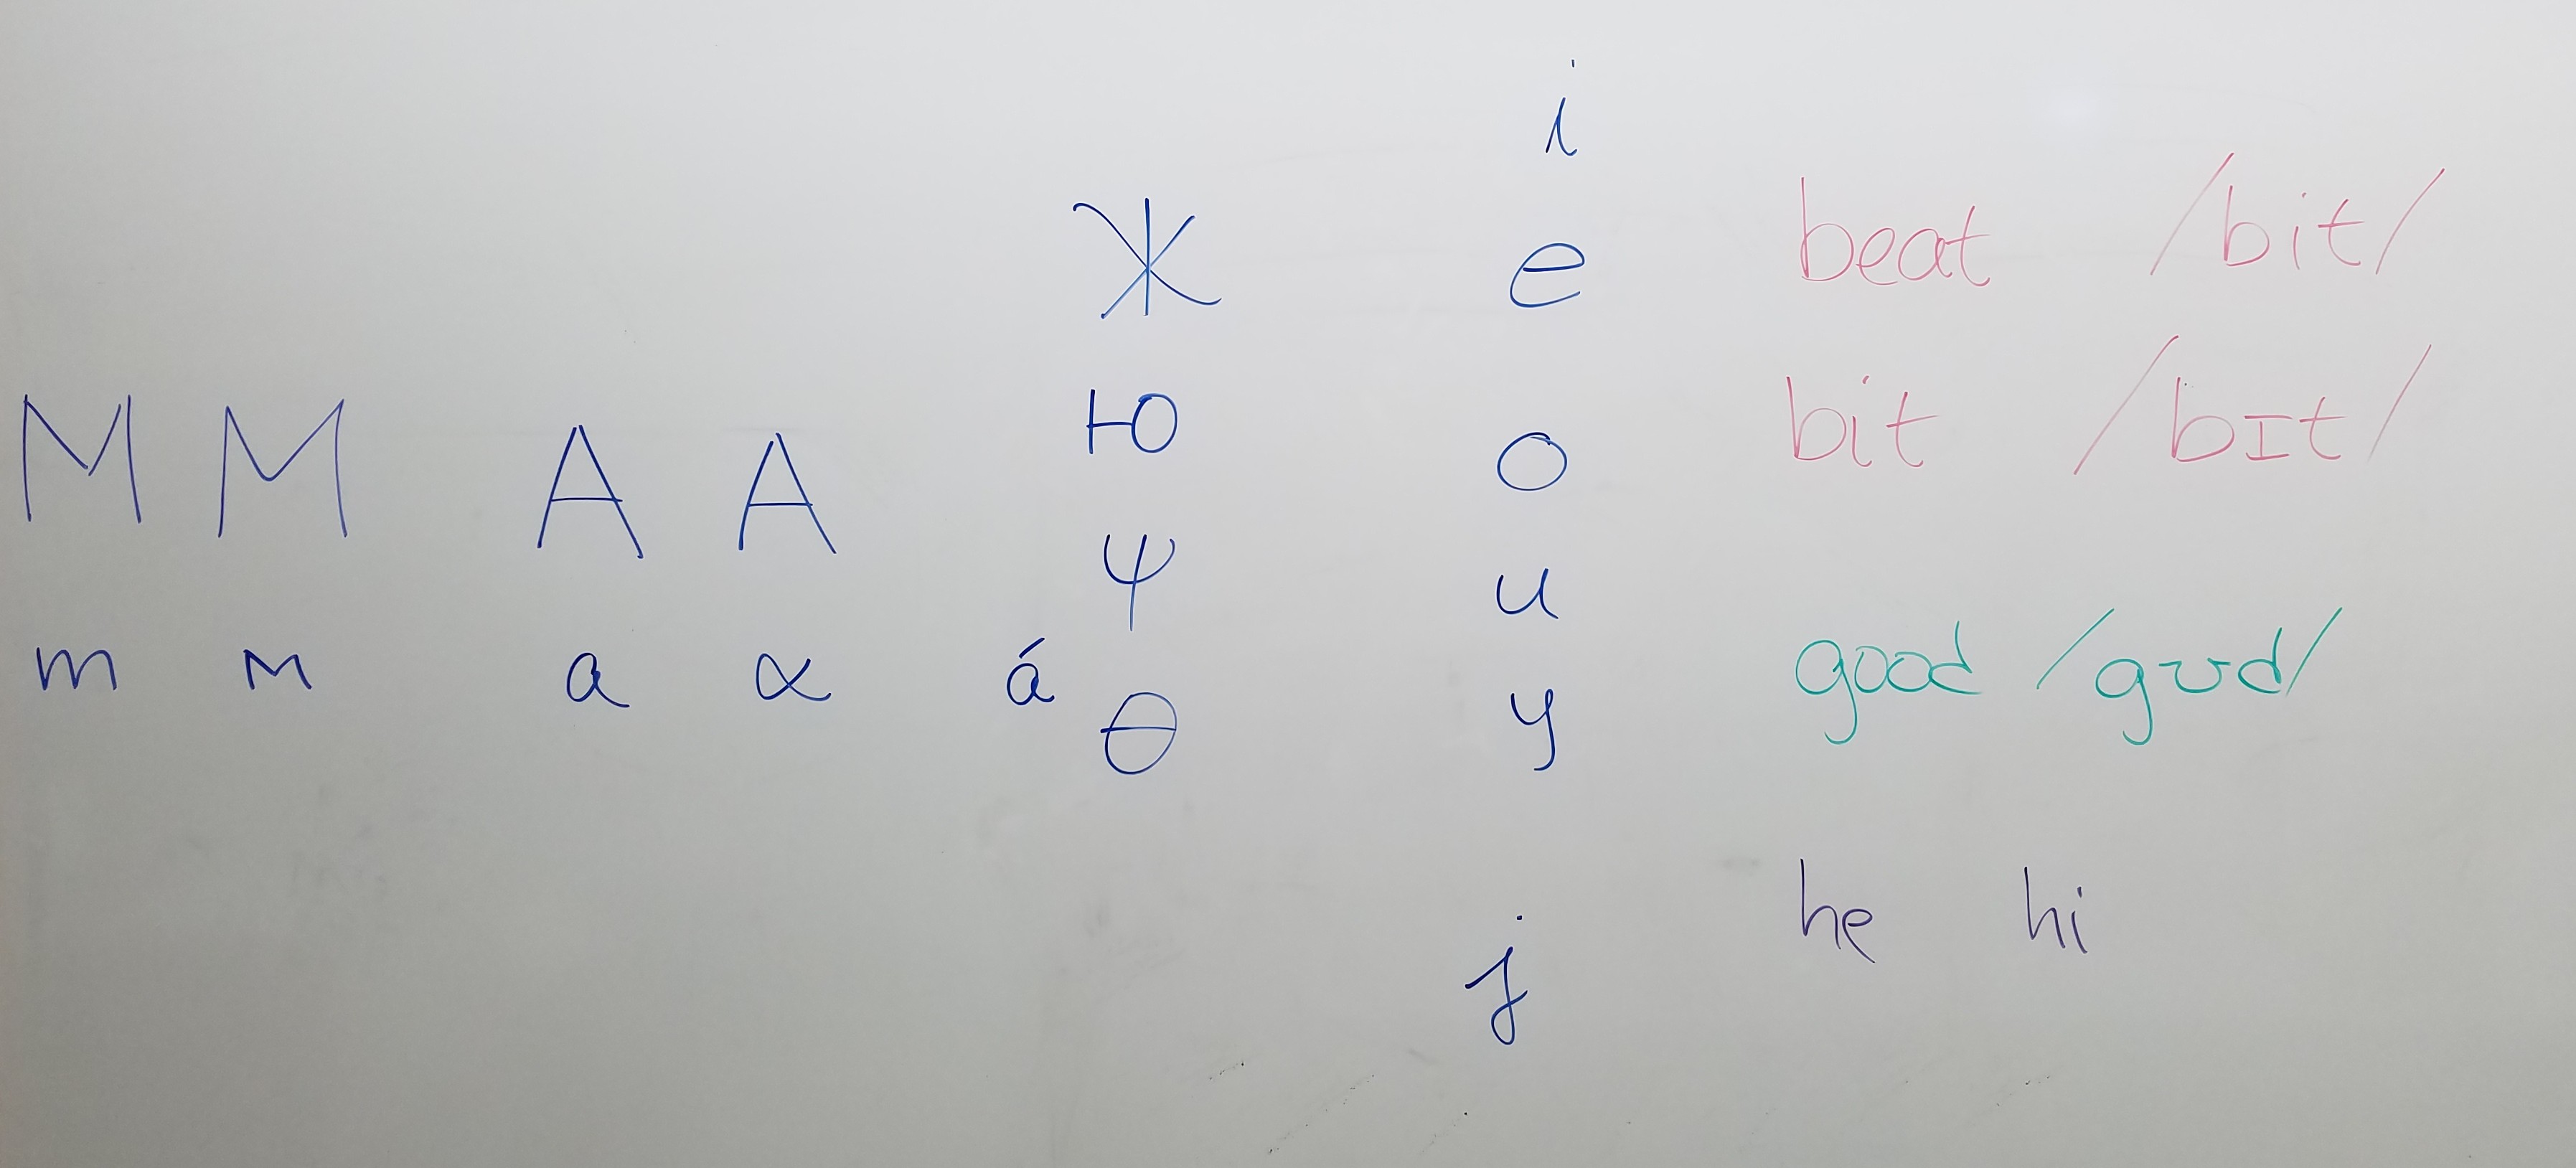 M М A Α
m м a α á
Ж
Ю
ψ
θ
i
e
o
u
y
j
beat /bit/
bit /bɪt/
good /gʊd/
he hi